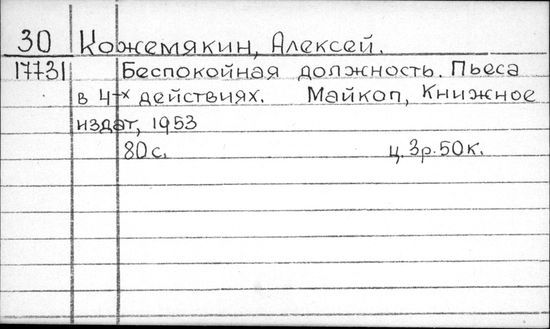 30 Кожемякин, Алексей.
17731 Беспокойная должность. Пьеса
в 4-х действиях. Майкоп, Книжное
издат, 1953
80с. ц. 3р. 50к.